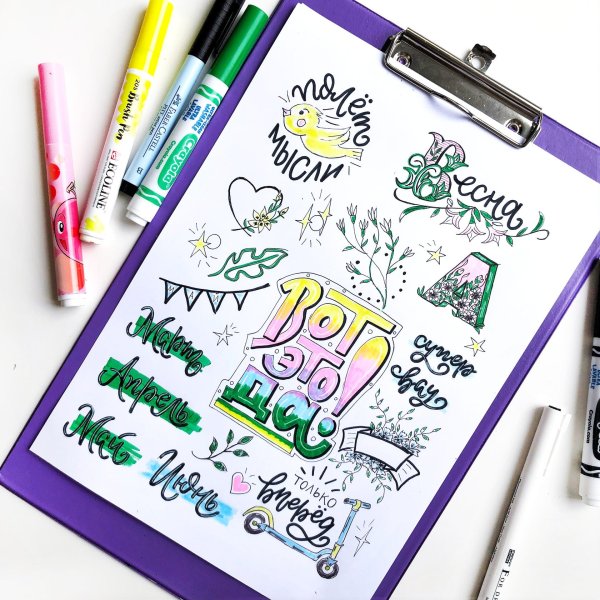 полёт
мысли
Весна
А
Вот
это
да!
супер
вау
Март
Апрель
Май
Июнь
только
вперёд
20% Brush Pen
ECOLINE
FABER-CASTELL
Crayola